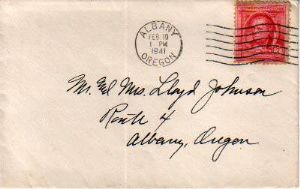 ALBANY
FEB 10
1 PM
1941
OREGON
Mr. & Mrs. Lloyd Johnson
Route 4
Albany, Oregon